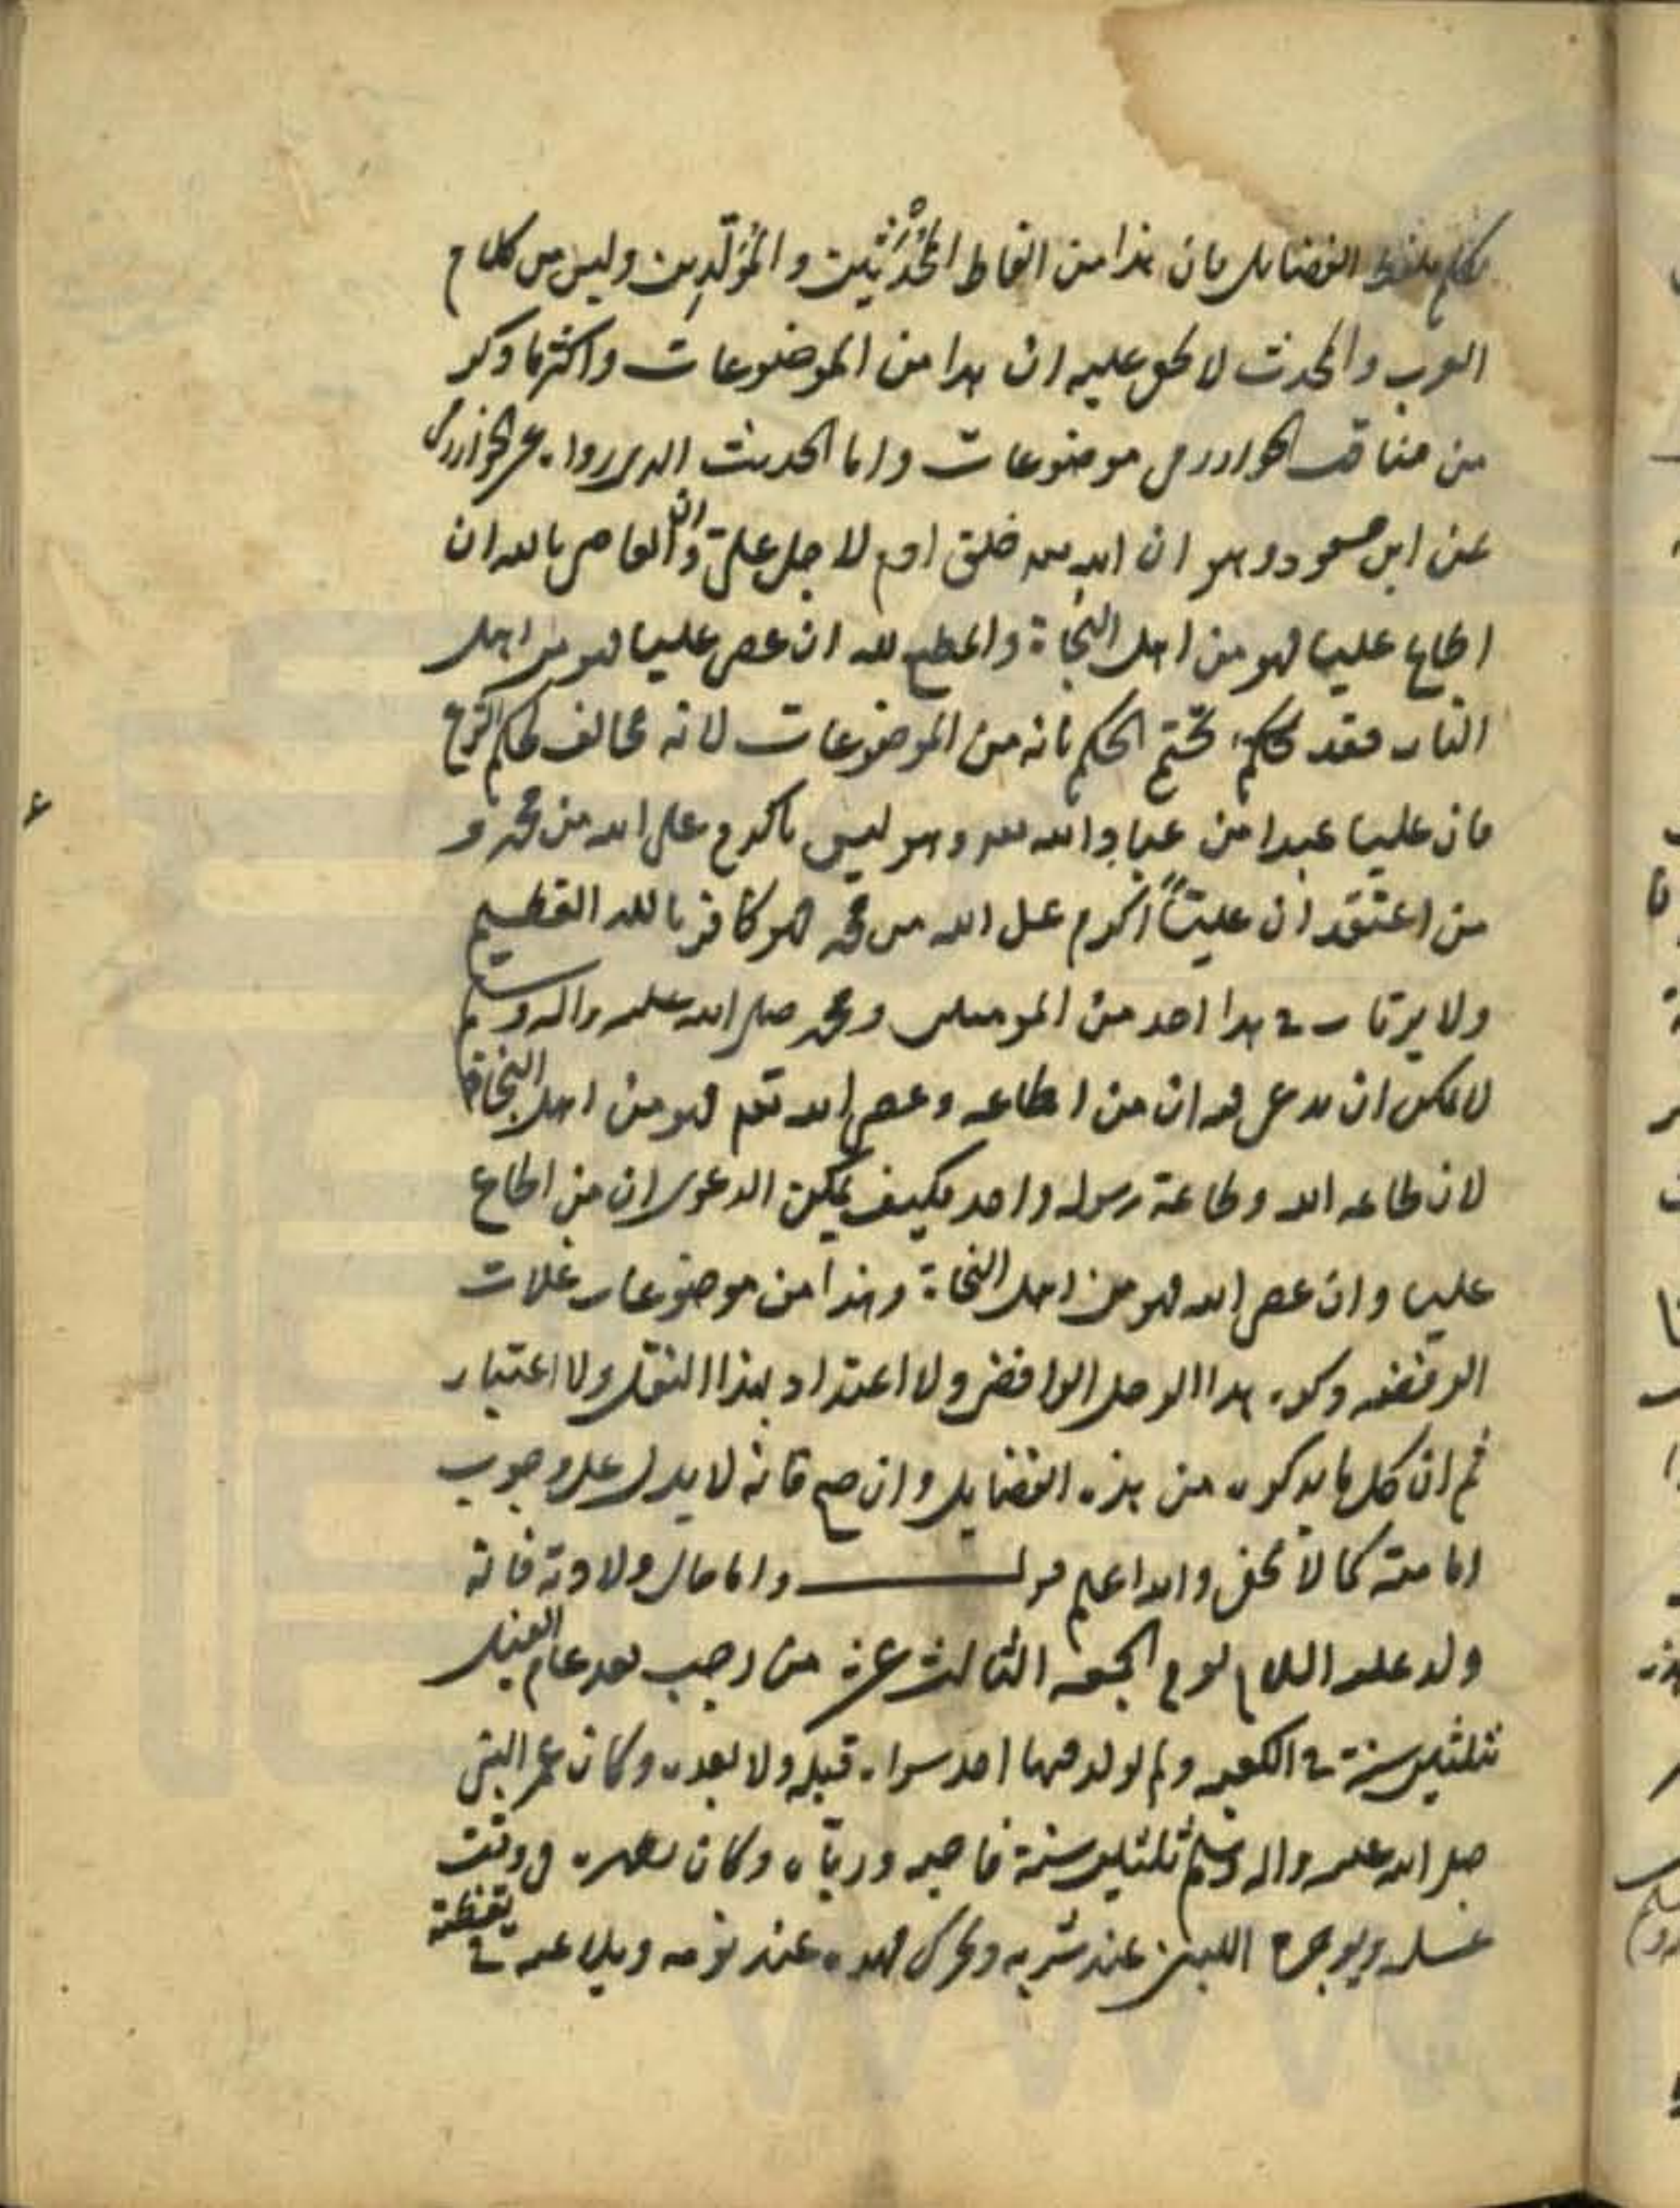 تكلم بلفظ الفضايل بان هذا من الفاظ المُحْدَثين والمُوَلَّدِين وليس من كلام
العرب والمحدث لا يخفى عليه ان هذا من الموضوعات واكثر ما ذكر
من مناقب الخوارزمي موضوعات واما الحديث الذي رواه عن الخوارزمي
عن ابن مسعود وهو ان الله تعالى خلق ادم لاجل علي وان العاصي بالله ان
اطاع عليا فهو من اهل النجاة والمطيع لله ان عصى عليا فهو من اهل
النار فقد تحتم الحكم بانه من الموضوعات لانه مخالف لحكم الشرع
فان عليا عبدا من عباد الله تعالى وهو ليس باكرم على الله من محمد و
من اعتقد ان علياً اكرم على الله من محمد فهو كافر بالله العظيم
ولا يرتاب في هذا احد من المومنين ومحمد صلى الله عليه واله وسلم
لا يمكن ان يدعى فيه ان من اطاعه وعصى الله تعالى فهو من اهل النجاة
لان طاعه الله وطاعة رسوله واحد فكيف يمكن الدعوى ان من اطاع
عليا وان عصى الله فهو من اهل النجاة وهذا من موضوعات غلات
الرفضه وكون هذا الرجل الرافضي ولا اعتداد بهذا النقل ولا اعتبار
ثم ان كل ما يذكره من هذه الفضايل وان صح فانه لا يدل على وجوب
امامته كما لا يخفى والله اعلم قوله واما حال ولادته فانه
ولد عليه السلام يوم الجمعه الثالث عشر من رجب بعد عام الفيل
بثلثين سنة في الكعبه ولم يولد فيها احد سواه قبله ولا بعده وكان عمر النبي
صلى الله عليه واله وسلم ثلثين سنة فاحبه ورباه وكان يطهره في وقت
غسله ويوجره اللبن عند شربه ويحرك مهده عند نومه ويلاعبه في يقظته